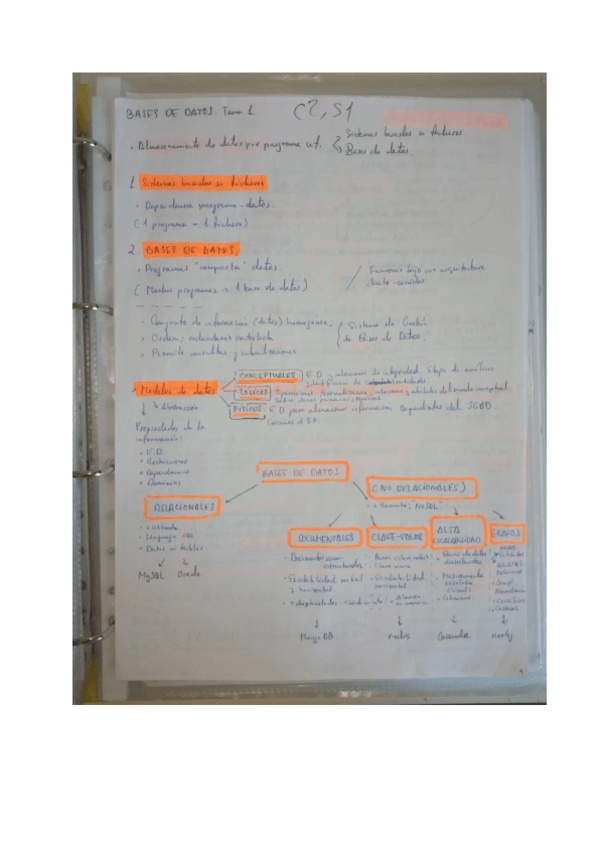 BASES DE DATOS. Tema 1.
C2, S1
• Almacenamiento de datos por programa inf.
Sistemas basados en ficheros
Bases de datos.
1. Sistemas basados en ficheros
• Dependencia programa-datos.
(1 programa = 1 fichero)
2. BASES DE DATOS.
• Programas "comparten" datos.
(Muchos programas = 1 base de datos)
Funcionan bajo una arquitectura
cliente-servidor
• Conjunto de información (datos) homogénea.
• Orden; redundancia controlada
• Permite consultas y actualizaciones.
Sistema de Gestión
de Bases de Datos.
Modelos de datos
CONCEPTUALES: E.D y relaciones de integridad. Etapa de análisis
identificación de entidades
LÓGICOS
relaciones y atributos del modelo conceptual
FÍSICOS: E.D para almacenar información. Dependientes del SGBD
Abstracción
Propiedades de la
información:
• E.D.
• Restricciones
• Dependencias
• Dominios
BASES DE DATOS
RELACIONALES
(NO RELACIONALES)
"NoSQL"
• Lenguaje SQL
• Datos en tablas
MySQL Oracle
DOCUMENTALES
• Documentos semi-
estructurados
• Escalabilidad vertical
y horizontal
MongoDB
CLAVE-VALOR
• Clave única
• Escalabilidad
horizontal
en memoria
redis
ALTA
ESCALABILIDAD
• Bases de datos
distribuidas
Cassandra
GRAFOS
neo4j